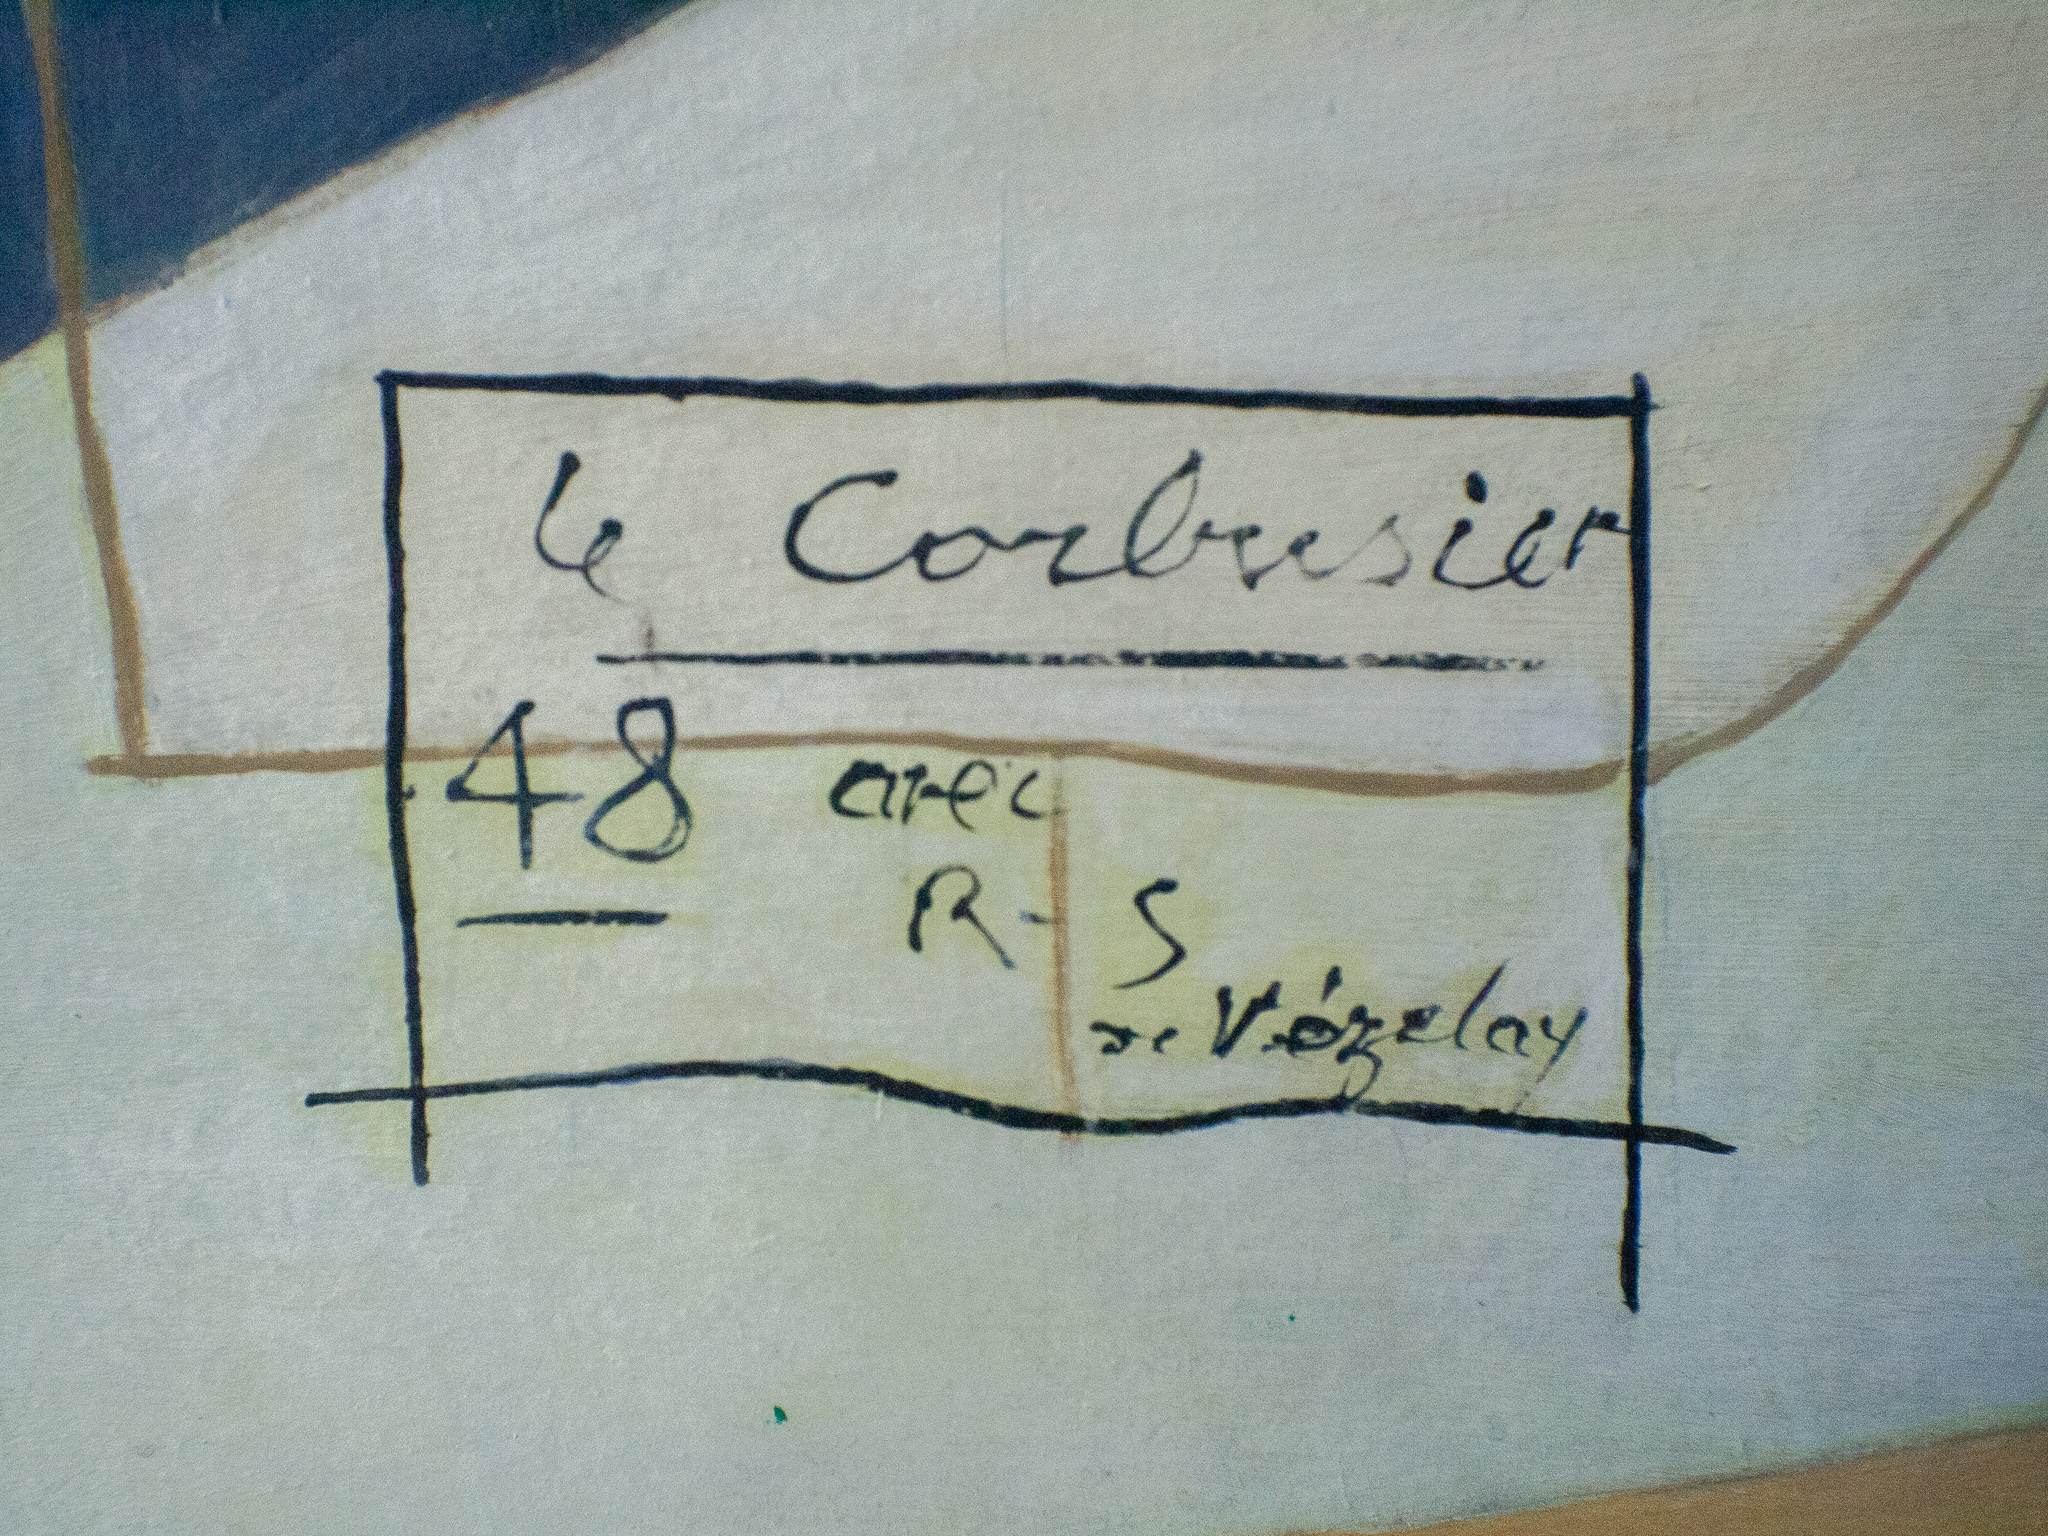 Le Corbusier
48 avec
R-S
de Vézelay